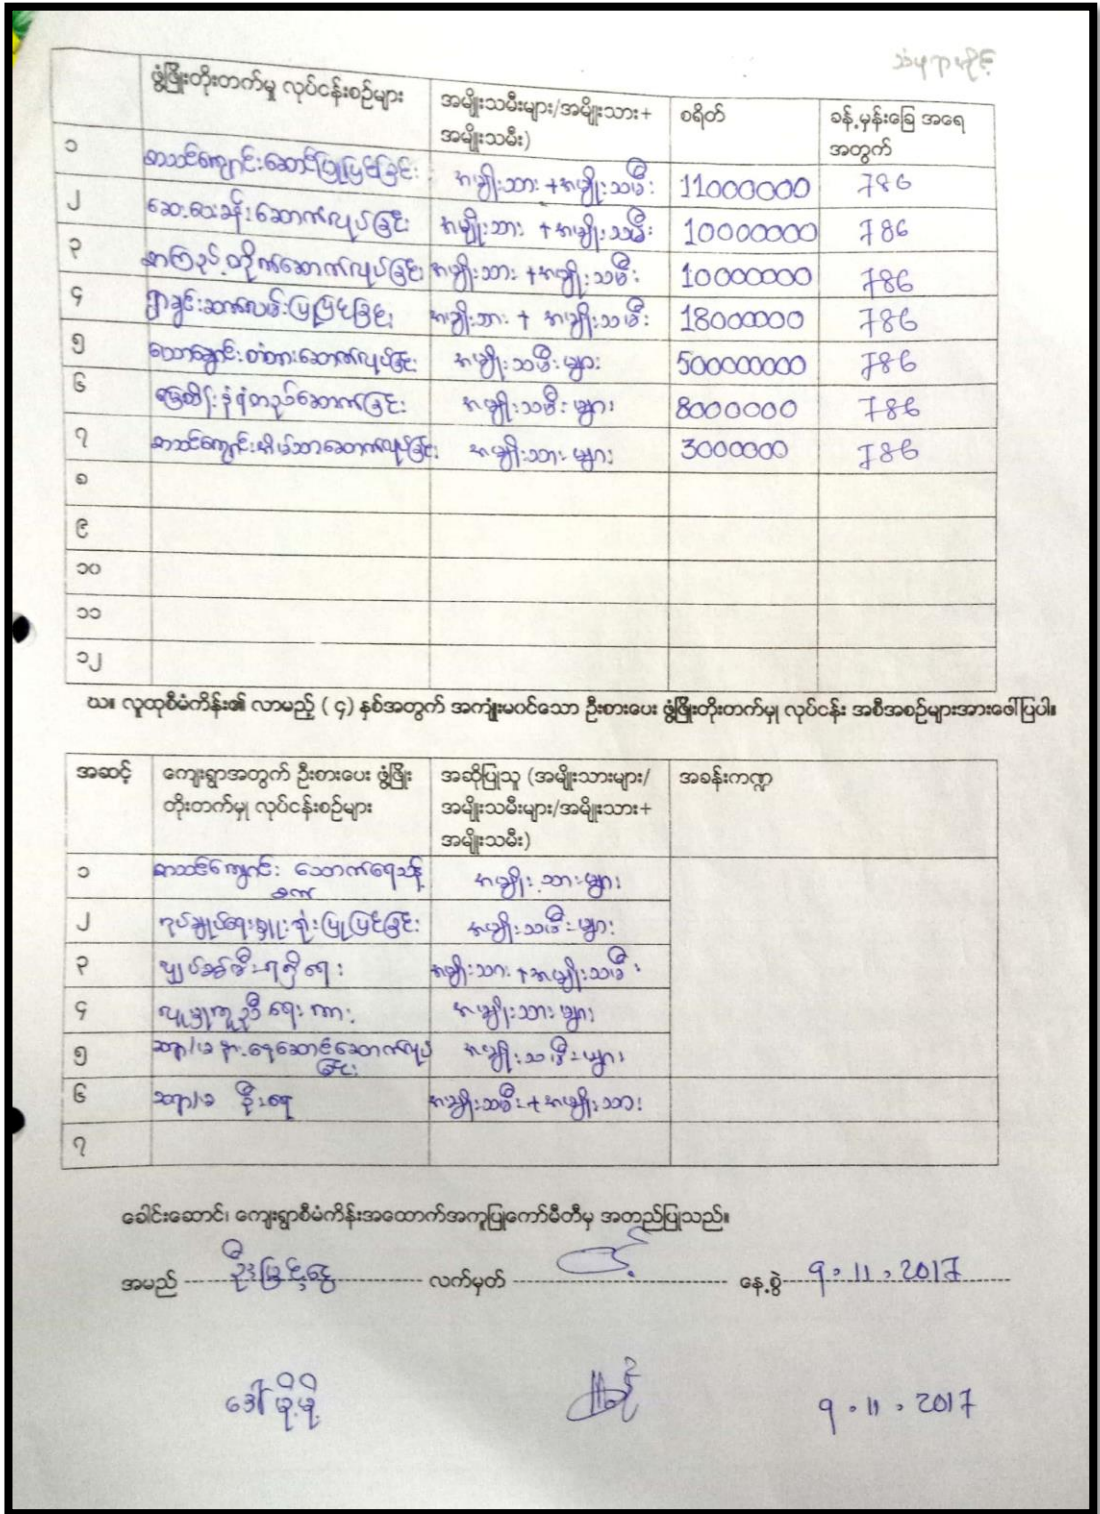 ဖွံ့ဖြိုးတိုးတက်မှု လုပ်ငန်းစဉ်များ
အမျိုးသမီးများ/အမျိုးသား+
အမျိုးသမီး)
စရိတ်
ခန့်မှန်းခြေ အရေ
အတွက်
၁ စာသင်ကျောင်းဆောင်ပြုပြင်ခြင်း အမျိုးသား+အမျိုးသမီး 11000000 786
၂ ဆေးပေးခန်းဆောက်လုပ်ခြင်း အမျိုးသား+အမျိုးသမီး 10000000 786
၃ စာကြည့်တိုက်ဆောက်လုပ်ခြင်း အမျိုးသား+အမျိုးသမီး 10000000 786
၄ ရွာချင်းဆက်လမ်းပြုပြင်ခြင်း အမျိုးသား+အမျိုးသမီး 18000000 786
၅ ချောင်းတံတားဆောက်လုပ်ခြင်း အမျိုးသမီးများ 50000000 786
၆ မြေထိန်းနံရံတည်ဆောက်ခြင်း အမျိုးသမီးများ 8000000 786
၇ စာသင်ကျောင်းအိမ်သာဆောက်လုပ်ခြင်း အမျိုးသားများ 3000000 786
၈
၉
၁၀
၁၁
၁၂
ဃ။ လူထုစီမံကိန်း၏ လာမည့် (၄) နှစ်အတွက် အကျုံးမဝင်သော ဦးစားပေး ဖွံ့ဖြိုးတိုးတက်မှု လုပ်ငန်း အစီအစဉ်များအားဖေါ်ပြပါ။
အဆင့်
ကျေးရွာအတွက် ဦးစားပေး ဖွံ့ဖြိုး
တိုးတက်မှု လုပ်ငန်းစဉ်များ
အဆိုပြုသူ (အမျိုးသားများ/
အမျိုးသမီးများ/အမျိုးသား+
အမျိုးသမီး)
အခန်းကဏ္ဍ
၁ စာသင်ကျောင်း သောက်ရေသန့်
စက် အမျိုးသားများ
၂ အုပ်ချုပ်ရေးမှူးရုံးပြုပြင်ခြင်း အမျိုးသမီးများ
၃ လျှပ်စစ်မီးရရှိရေး အမျိုးသား+အမျိုးသမီး
၄ လူမှုကူညီရေးကား အမျိုးသားများ
၅ ဆရာ/မ များနေဆောင်ဆောက်လုပ်
ခြင်း အမျိုးသမီးများ
၆ ဆရာ/မ အမျိုးသမီး+အမျိုးသား
၇
ခေါင်းဆောင်၊ ကျေးရွာစီမံကိန်းအထောက်အကူပြုကော်မီတီမှ အတည်ပြုသည်။
အမည် ဦးမြင့်ငွေ လက်မှတ် နေ့စွဲ ၅.11.2017
ဒေါ်မို့မို့ ၅.11.2017